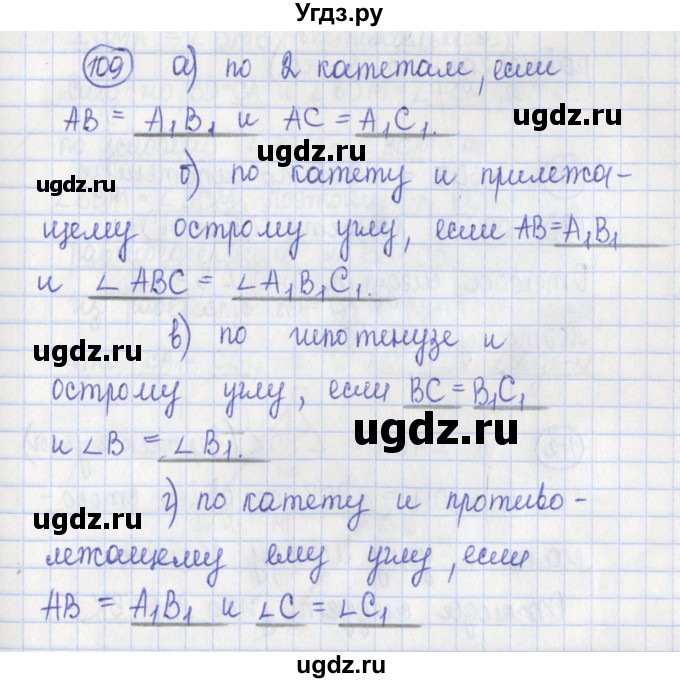 Угдз.ру
109 а) по 2 катетам, если
AB = A₁B₁ и AC = A₁C₁.
ugdz.ru ugdz.ru
ugdz.ru б) по катету и прилежа-
щему острому углу, если AB=A₁B₁
и ∠ABC = ∠A₁B₁C₁.
ugdz.ru
в) по гипотенузе и
ugdz.ru
острому углу, если BC = B₁C₁
ugdz.ru
и ∠B = ∠B₁.
г) по катету и противо-
ugdz.ru ugdz.ru
лежащему ему углу, если
AB = A₁B₁ и ∠C = ∠C₁
ugdz.ru